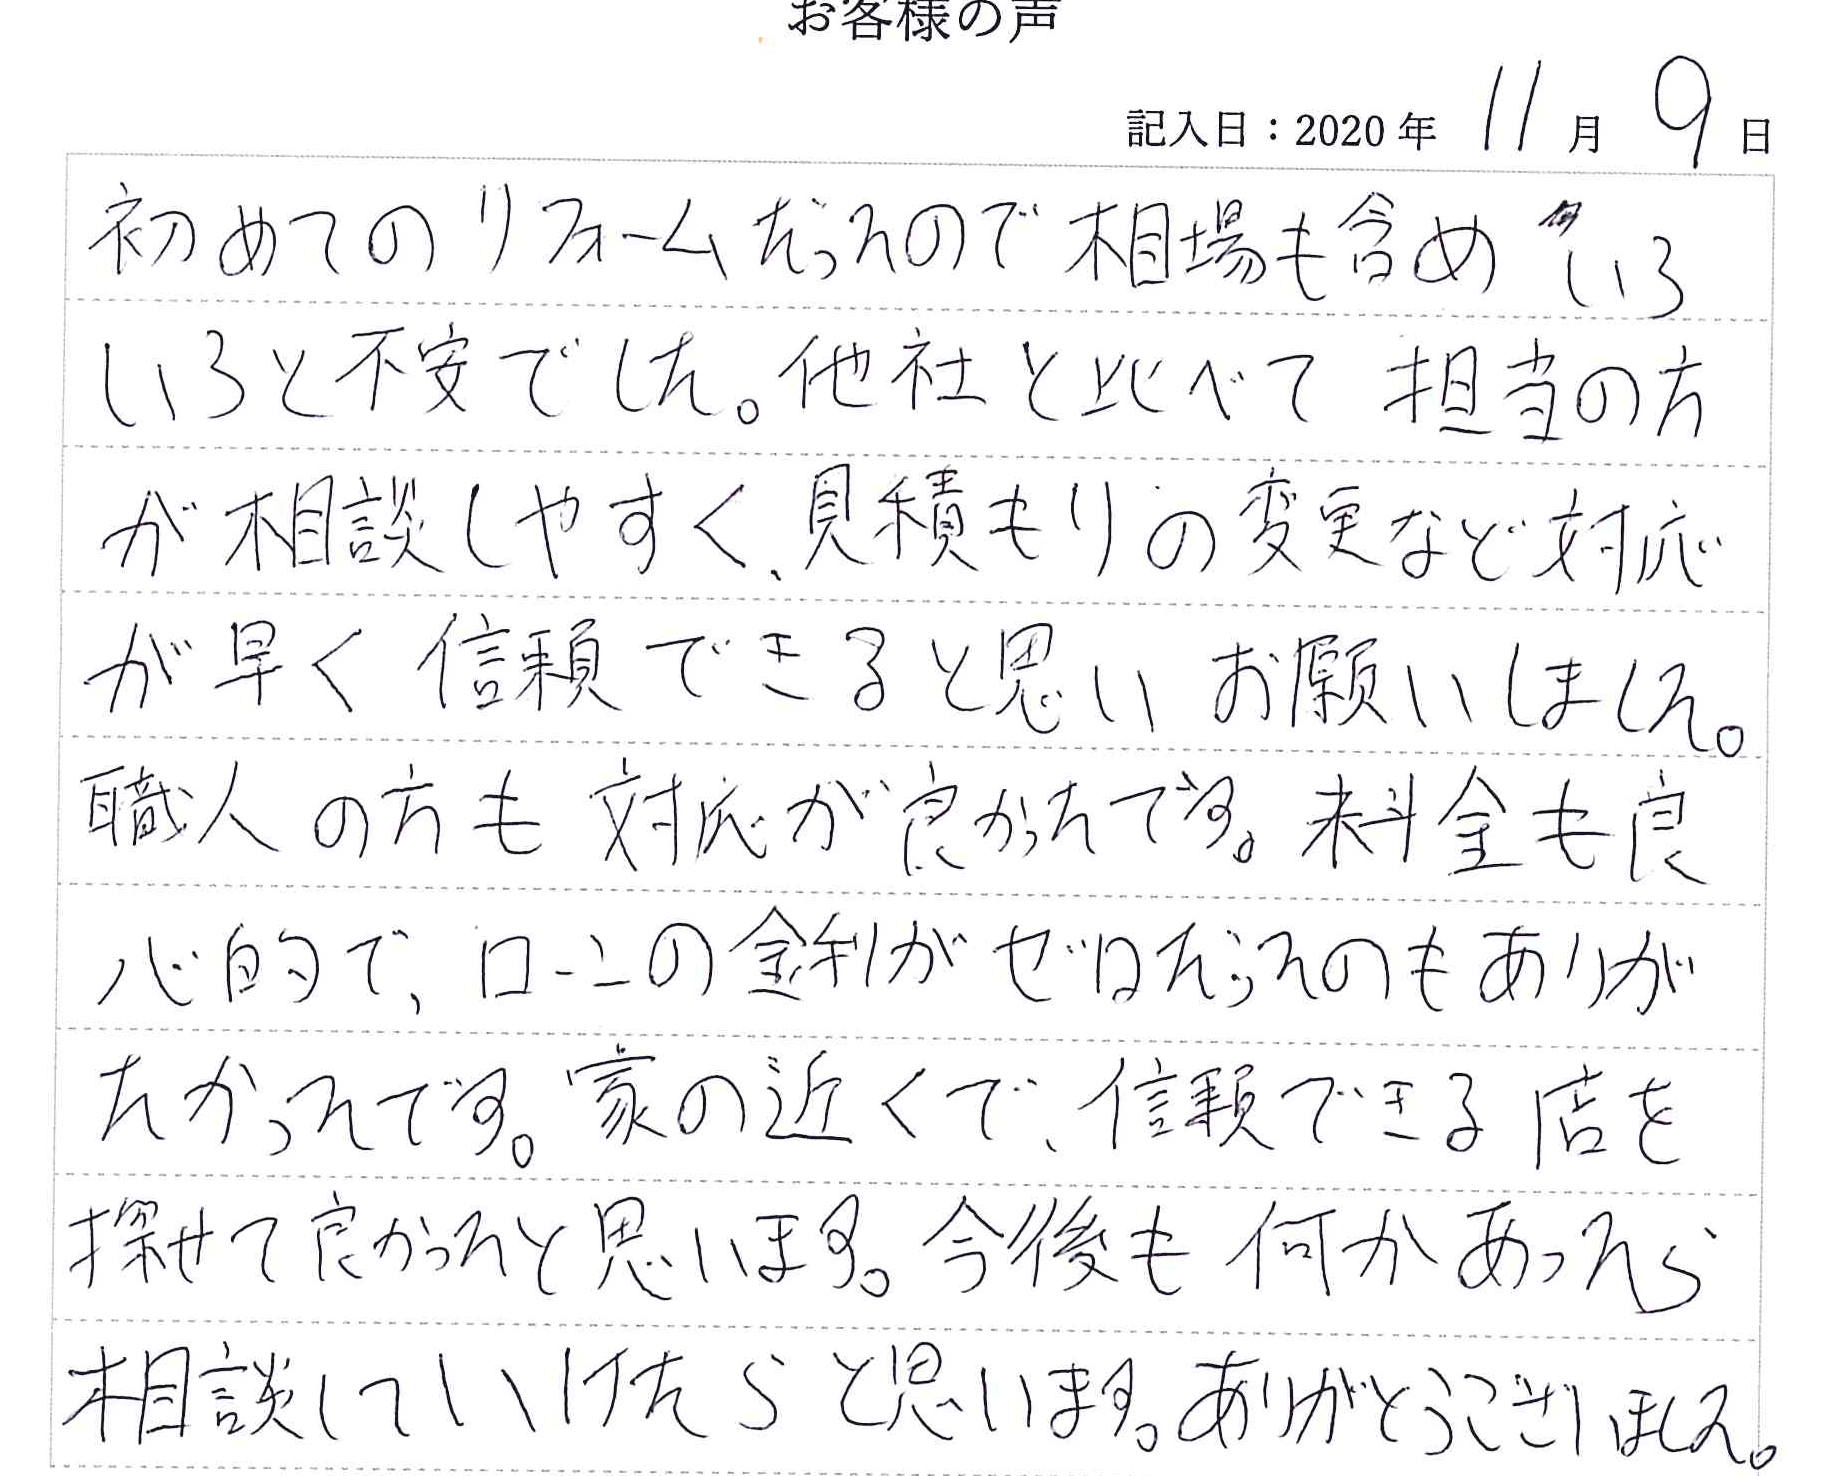 お客様の声
記入日：2020年 11月 9日
初めてのリフォームだったので相場も含めいろ
いろと不安でした。他社と比べて担当の方
が相談しやすく、見積もりの変更など対応
が早く信頼できると思いお願いしました。
職人の方も対応が良かったです。料金も良
心的で、ローンの金利がゼロだったのもありが
たかったです。家の近くで、信頼できる店を
探せて良かったと思います。今後も何かあったら
相談していけたらと思います。ありがとうございました。